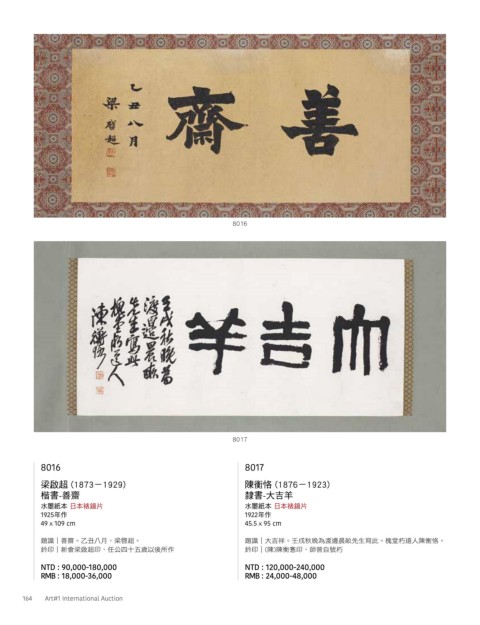 善齋
乙丑八月
梁啟超
8016
大吉羊
壬戌秋晚為
渡邊晨畝
先生寫此
槐堂朽道人
陳衡恪
8017
8016
梁啟超 (1873－1929)
楷書-善齋
水墨紙本 日本裱鏡片
1925年作
49 x 109 cm
題識｜善齋。乙丑八月，梁啓超。
鈐印｜新會梁啟超印、任公四十五歲以後所作
NTD : 90,000-180,000
RMB : 18,000-36,000
8017
陳衡恪 (1876－1923)
隸書-大吉羊
水墨紙本 日本裱鏡片
1922年作
45.5 x 95 cm
題識｜大吉祥。壬戌秋晚為渡邊晨畝先生寫此，槐堂朽道人陳衡恪。
鈐印｜(陳)陳衡恪印、師曾自號朽
NTD : 120,000-240,000
RMB : 24,000-48,000
164 Art#1 International Auction